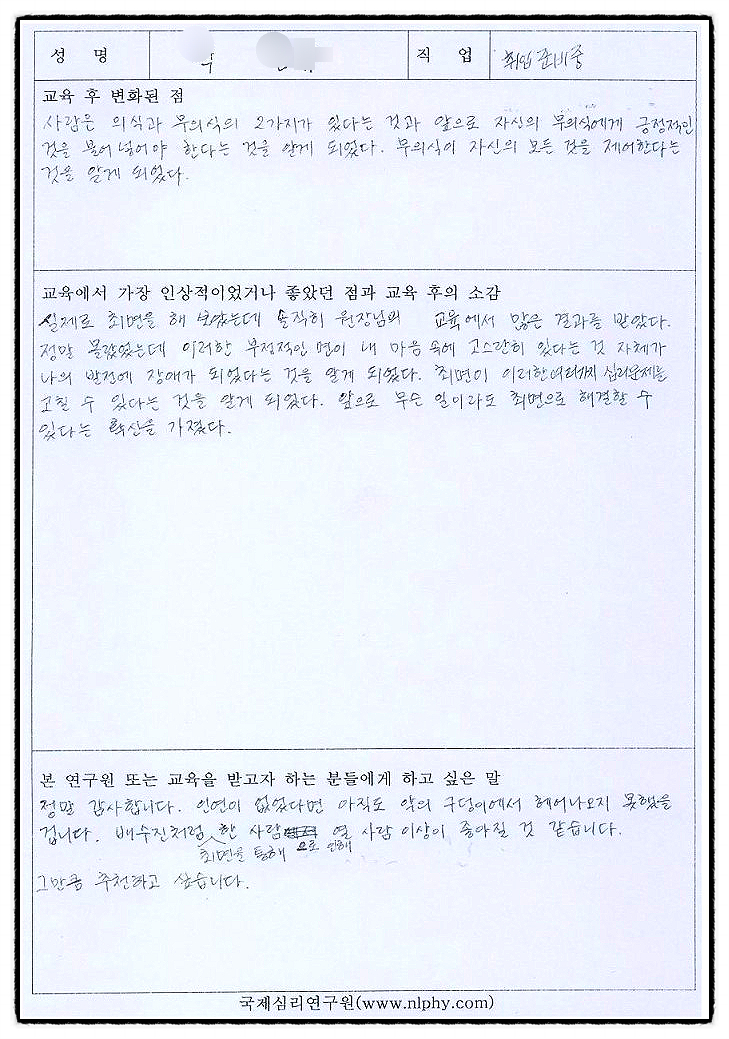 성 명
직 업 취업 준비중
교육 후 변화된 점
사람은 의식과 무의식의 2가지가 있다는 것과 앞으로 자신의 무의식에게 긍정적인
것을 불어넣어야 한다는 것을 알게 되었다. 무의식이 자신의 모든 것을 제어한다는
것을 알게 되었다.
교육에서 가장 인상적이었거나 좋았던 점과 교육 후의 소감
실제로 최면을 해 보았는데 솔직히 원장님의 교육에서 많은 결과를 받았다.
정말 몰랐었는데 이러한 부정적인 면이 내 마음 속에 고스란히 있다는 것 자체가
나의 발전에 장애가 되었다는 것을 알게 되었다. 최면이 이러한 여러가지 심리문제를
고칠 수 있다는 것을 알게 되었다. 앞으로 무슨 일이라도 최면으로 해결할 수
있다는 확신을 가졌다.
본 연구원 또는 교육을 받고자 하는 분들에게 하고 싶은 말
정말 감사합니다. 인연이 없었다면 아직도 악의 구덩이에서 헤어나오지 못했을
겁니다. 배수진처럼 한 사람 열 사람 이상이 좋아질 것 같습니다.
최면을 통해 으로 인해
그만큼 추천하고 싶습니다.
국제심리연구원(www.nlphy.com)